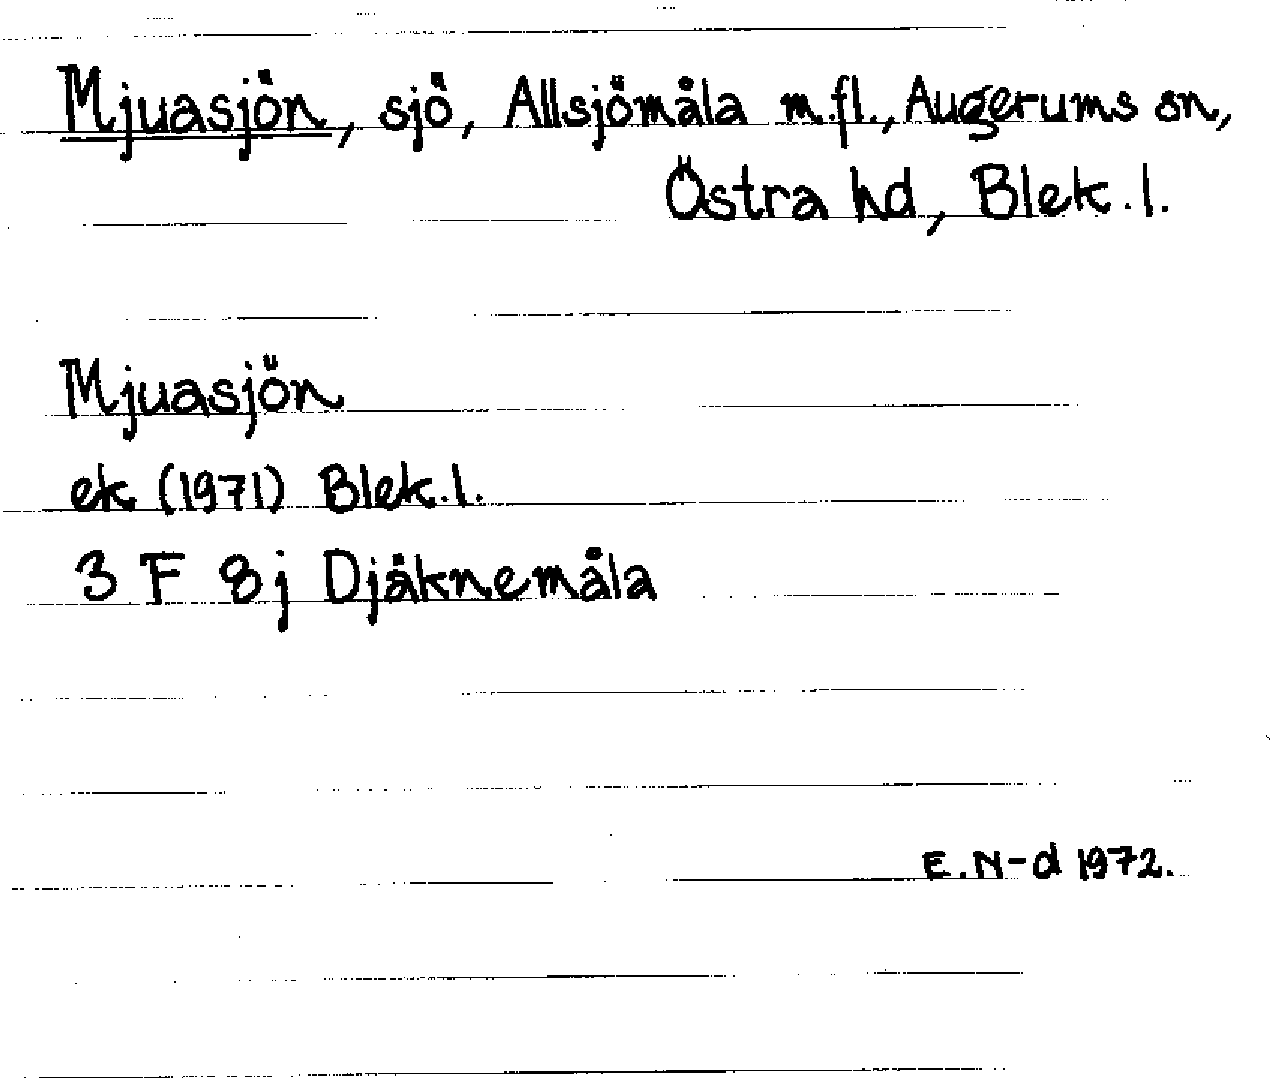 Mjuasjön, sjö, Allsjömåla m.fl., Augerums sn,
Östra hd, Blek.l.
Mjuasjön
ek (1971) Blek.l.
3 F 8j Djäknemåla
E.N-d 1972.